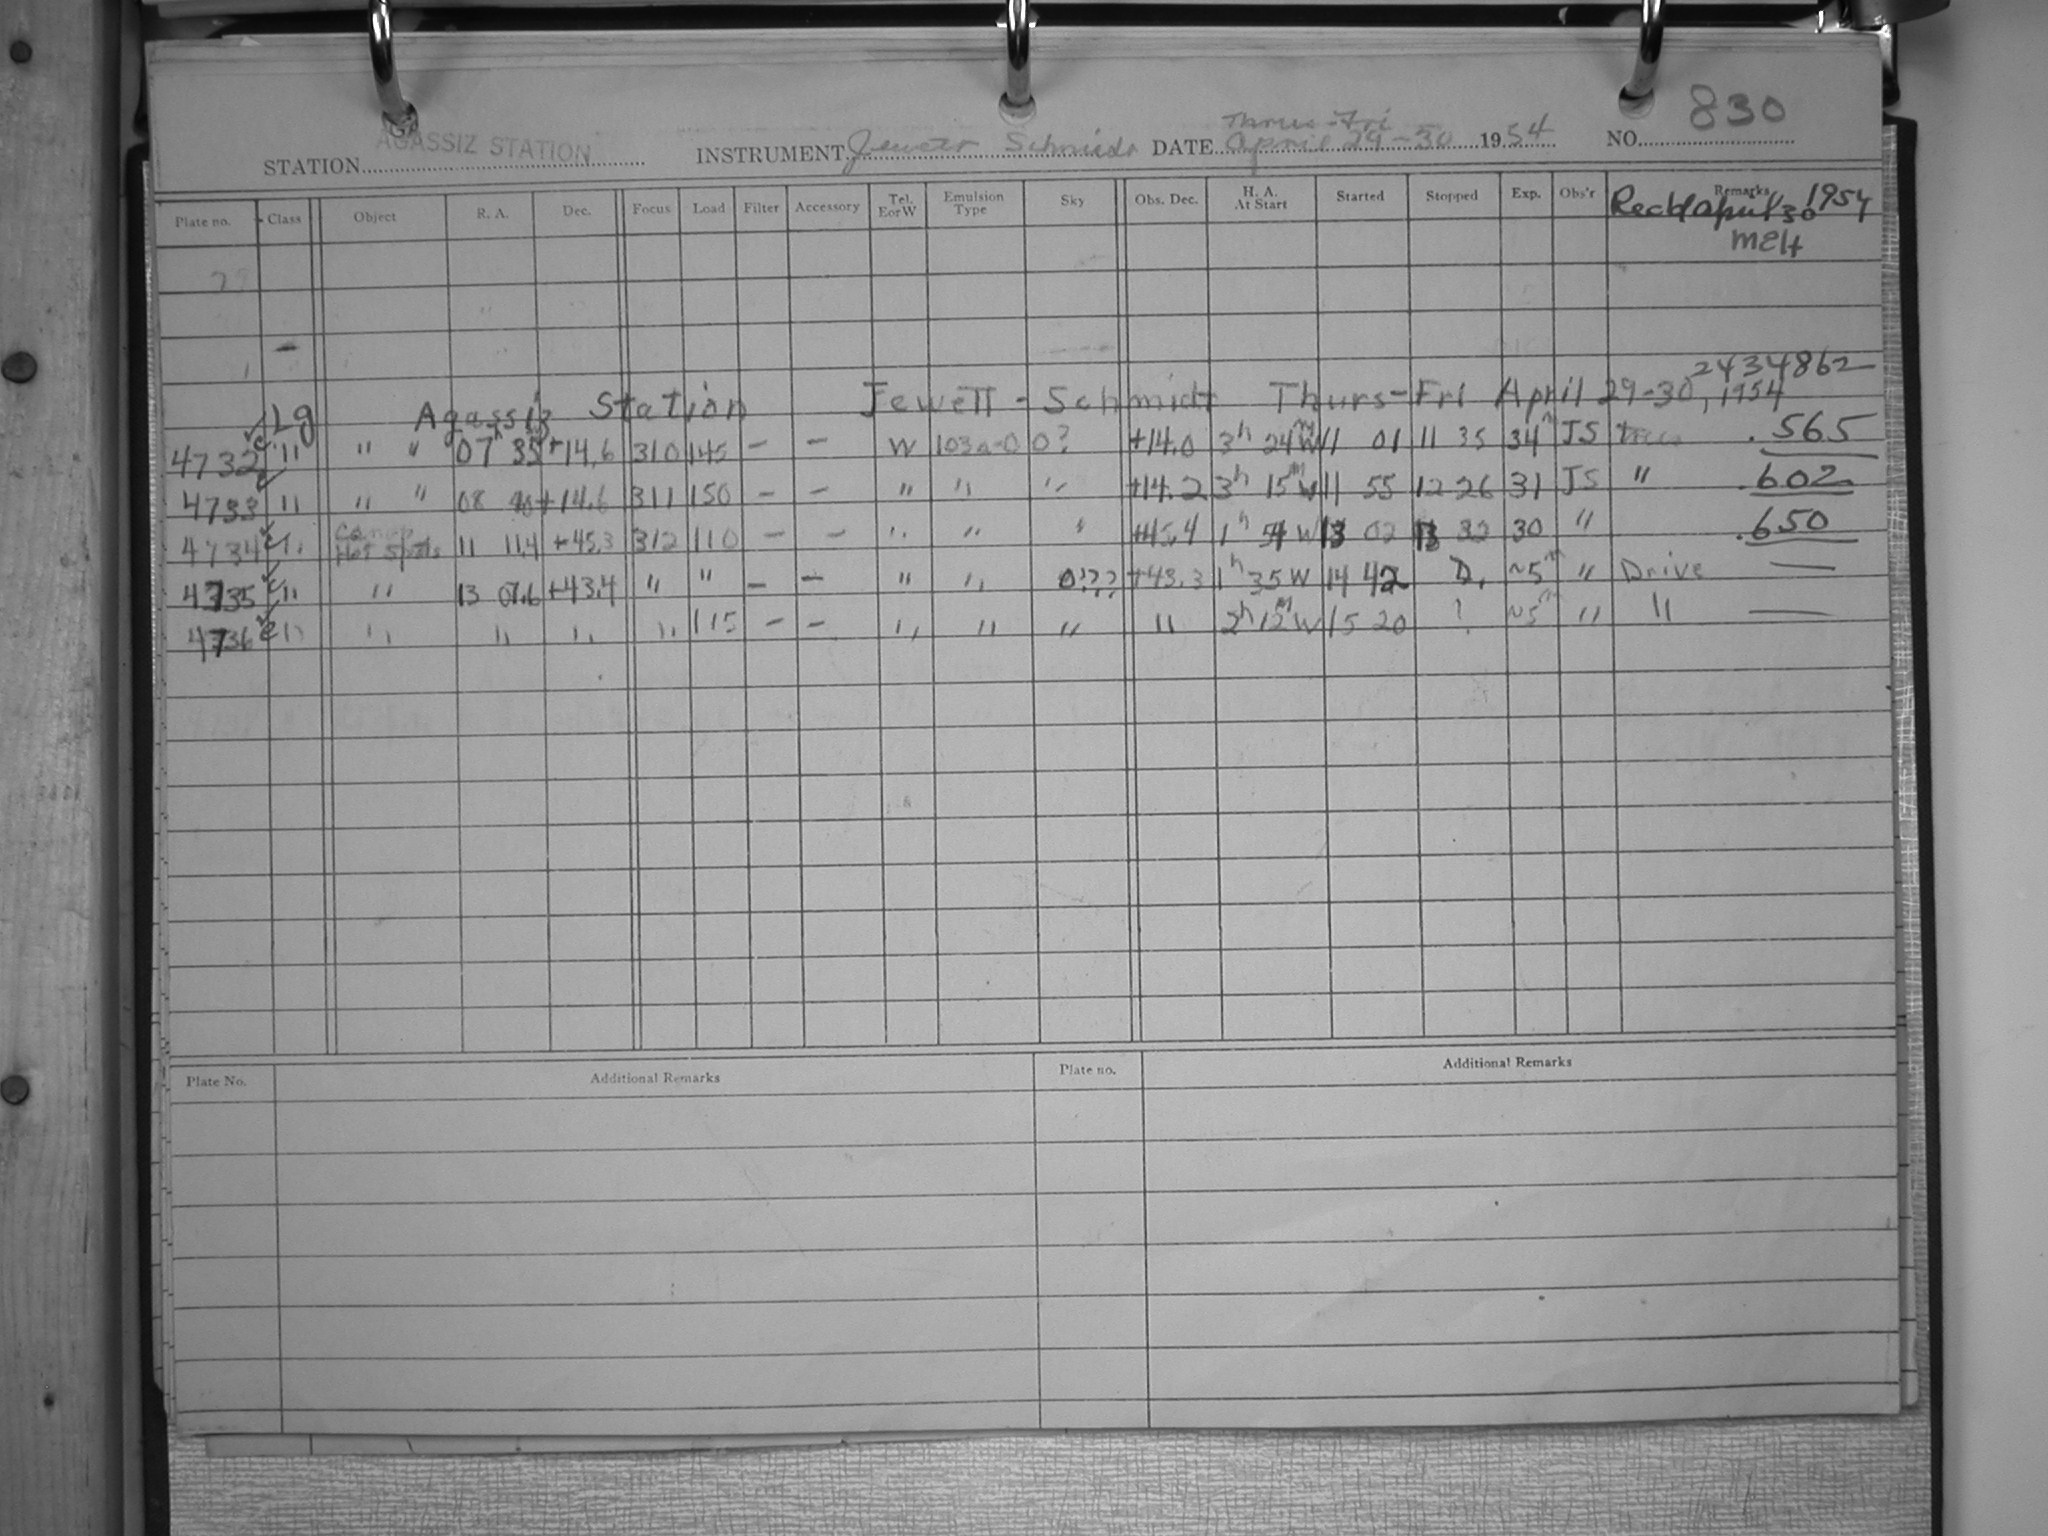 830
STATION AGASSIZ STATION INSTRUMENT Jewett Schmidt DATE Thurs-Fri April 29-30 1954 NO.
Plate no. Class Object R. A. Dec. Focus Load Filter Accessory Tel. E or W Emulsion Type Sky Obs. Dec. H. A. At Start Started Stopped Exp. Obs'r Remarks
Recd April 30 1954
melt
2434862
Lg Agassiz Station Jewett-Schmidt Thurs-Fri April 29-30, 1954
4732 " " " 07h 35 +14.6 310 145 - - W 103a-O 0? +14.0 3h 24m W 11 01 11 35 34m JS .565
4733 " " " 08 +14.6 311 150 - - " " " +14.2 3h 15m W 11 55 12 26 31 JS " .602
4734 " Hot Spots 11 11.4 +45.3 312 110 - - " " " +45.4 1h 54 W 13 02 13 32 30 " .650
4735 " " 13 07.6 +43.4 " " - - " " 0??? +43.3 1h 35 W 14 42 ?. ~5m " Drive —
4736 " " " " " 115 - - " " " " 2h 12m W 15 20 ? ~5m " " —
Plate No. Additional Remarks Plate no. Additional Remarks